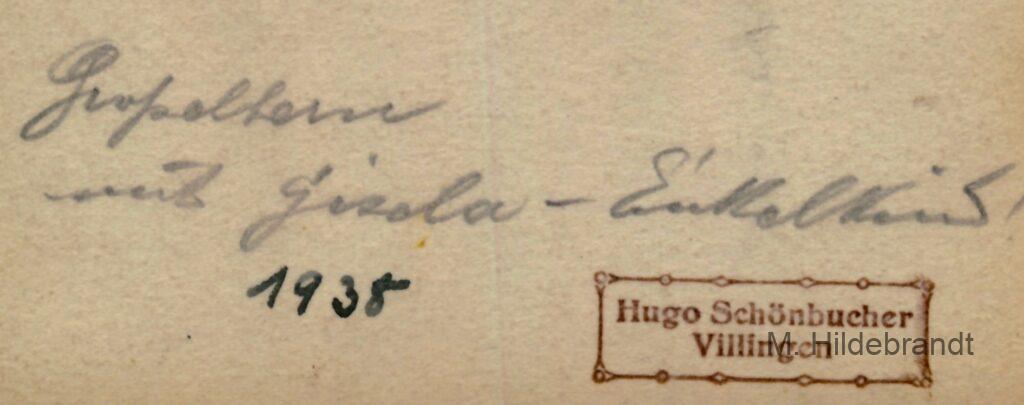 Großeltern
mit Gisela - Enkelkind!
1938
Hugo Schönbucher
Villingen
M. Hildebrandt